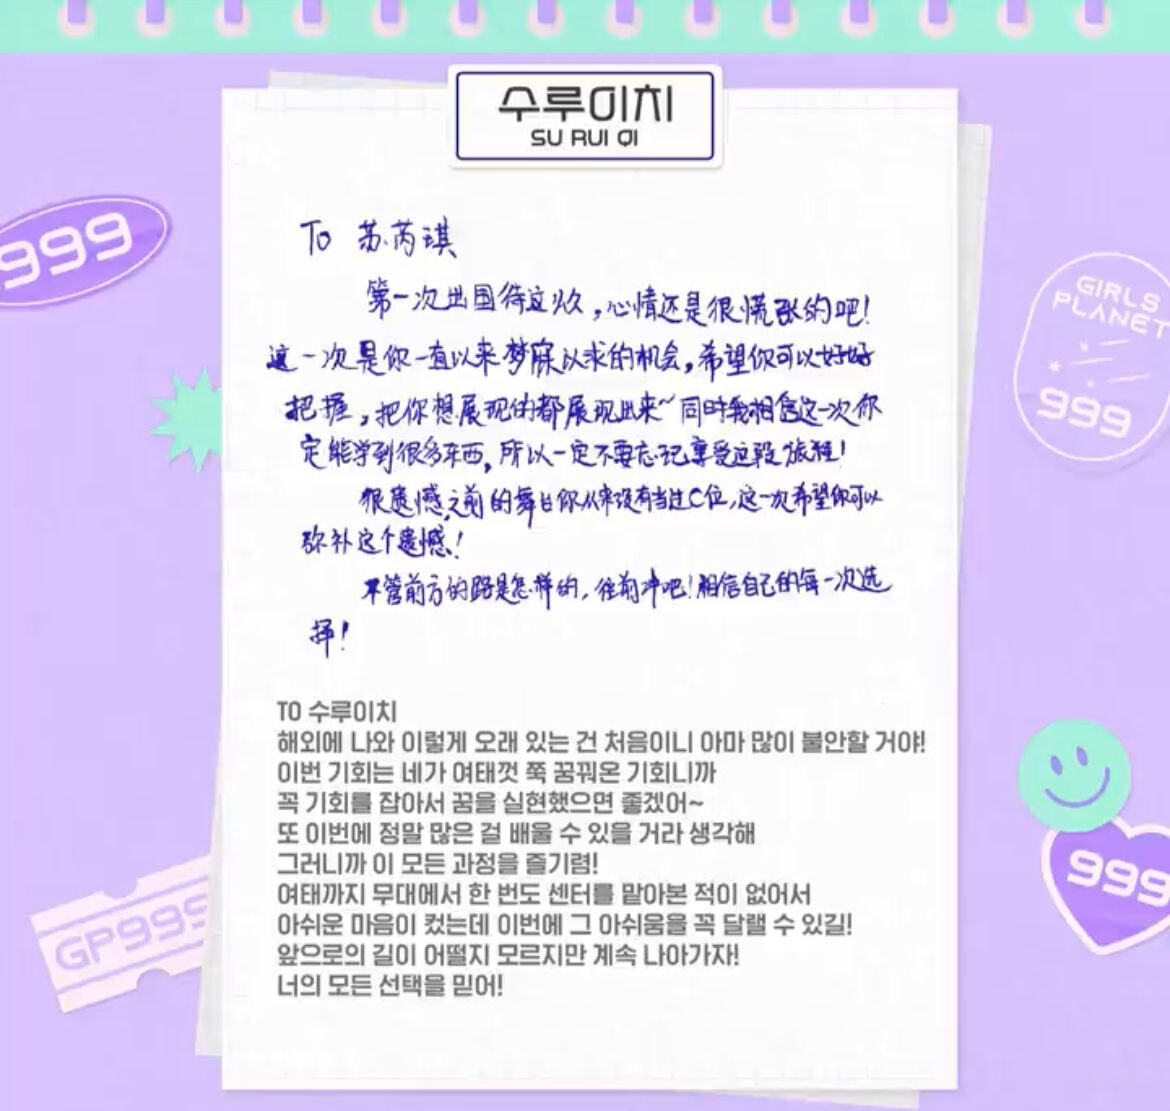 수루이치
SU RUI QI
TO 苏芮琪
第一次出国待这么久，心情还是很慌张的吧！
这一次是你一直以来梦寐以求的机会，希望你可以好好
把握，把你想展现的都展现出来~同时我相信这一次你
定能学到很多东西，所以一定不要忘记享受这段旅程！
很遗憾之前的舞台你从来没有当过C位，这一次希望你可以
弥补这个遗憾！
不管前方的路是怎样的，往前冲吧！相信自己的每一次选
择！
TO 수루이치
해외에 나와 이렇게 오래 있는 건 처음이니 아마 많이 불안할 거야!
이번 기회는 네가 여태껏 쭉 꿈꿔온 기회니까
꼭 기회를 잡아서 꿈을 실현했으면 좋겠어~
또 이번에 정말 많은 걸 배울 수 있을 거라 생각해
그러니까 이 모든 과정을 즐기렴!
여태까지 무대에서 한 번도 센터를 맡아본 적이 없어서
아쉬운 마음이 컸는데 이번에 그 아쉬움을 꼭 달랠 수 있길!
앞으로의 길이 어떨지 모르지만 계속 나아가자!
너의 모든 선택을 믿어!
999
GIRLS
PLANET
999
999
GP999